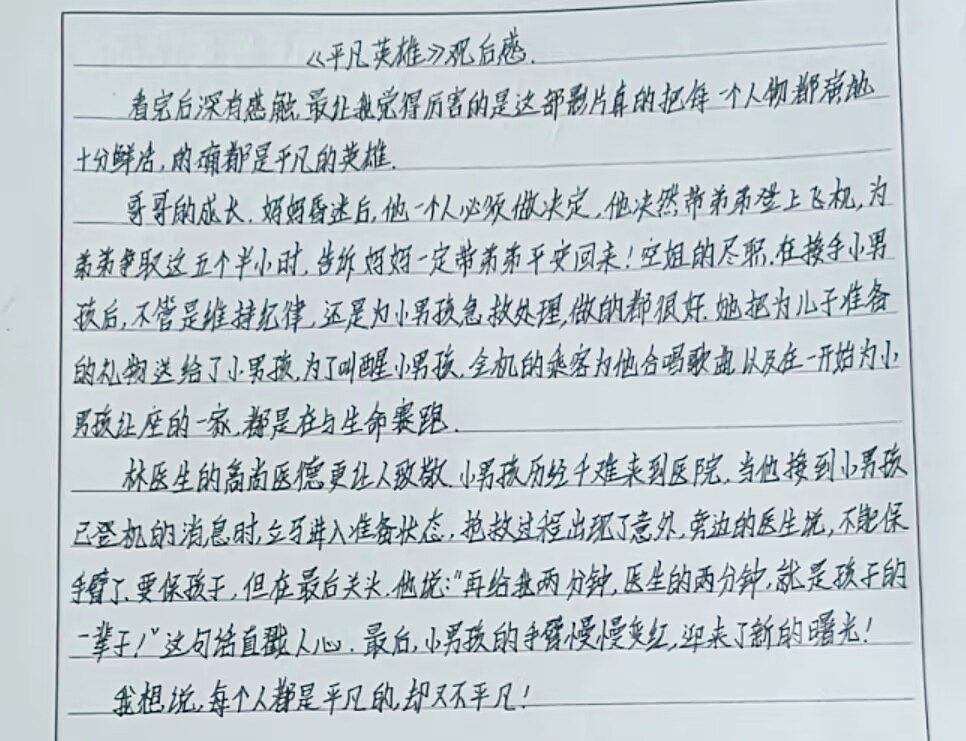 《平凡英雄》观后感.
看完后深有感触,最让我觉得厉害的是这部影片真的把每一个人物都演地
十分鲜活,的确都是平凡的英雄.
哥哥的成长.妈妈昏迷后,他一个人必须做决定,他决然带弟弟登上飞机,为
弟弟争取这五个半小时,告诉妈妈一定带弟弟平安回来!空姐的尽职,在接手小男
孩后,不管是维持纪律,还是为小男孩急救处理,做的都很好.她把为儿子准备
的礼物送给了小男孩,为了叫醒小男孩,全机的乘客为他合唱歌曲,以及在一开始为小
男孩让座的一家,都是在与生命赛跑.
林医生的高尚医德更让人致敬.小男孩历经千难来到医院,当他接到小男孩
已登机的消息时,立马进入准备状态,抢救过程出现了意外,旁边的医生说,不能保
手臂了,要保孩子,但在最后关头,他说:"再给我两分钟,医生的两分钟,就是孩子的
一辈子!"这句话直戳人心.最后,小男孩的手臂慢慢变红,迎来了新的曙光!
我想说,每个人都是平凡的,却又不平凡!